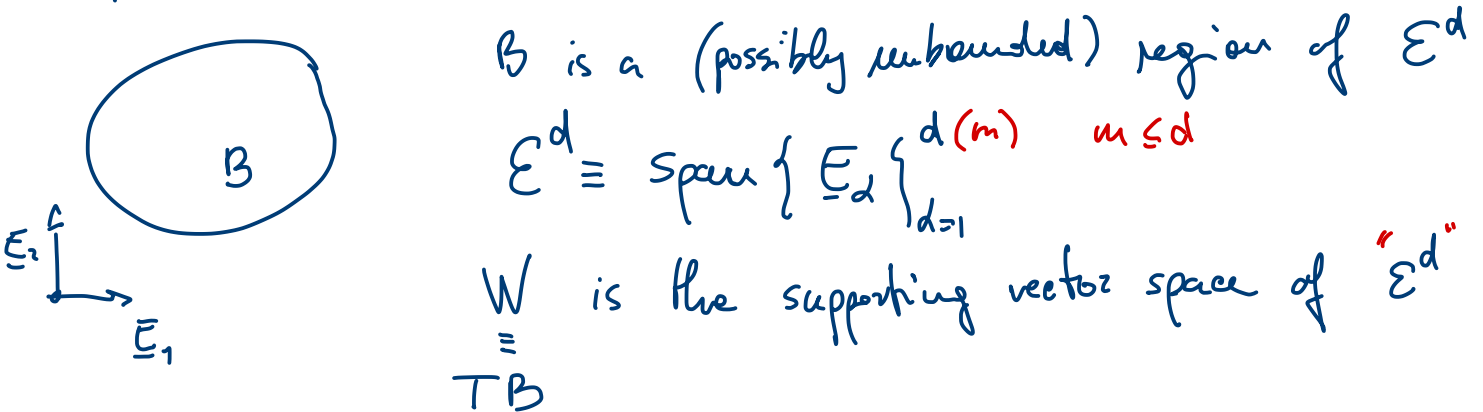 B is a (possibly unbounded) region of Ɛᵈ
B
Ɛᵈ ≡ span { E̲_α }_{α=1}^{d (m)} m ≤ d
E̲₂
E̲₁
W is the supporting vector space of "Ɛᵈ"
≡
TB